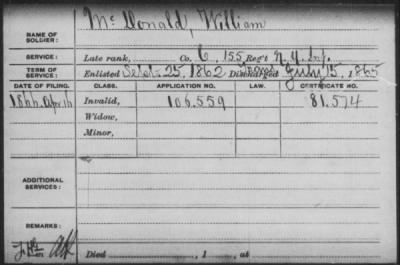 NAME OF SOLDIER: McDonald, William
SERVICE: Late rank, Co. C, 155 Reg't N.Y. Inf.
TERM OF SERVICE: Enlisted Sept. 25, 1862 Discharged July 15, 1865
DATE OF FILING. CLASS. APPLICATION NO. LAW. CERTIFICATE NO.
1866 Apr 16 Invalid, 106.559 81.574
Widow,
Minor,
ADDITIONAL SERVICES:
REMARKS:
Died , 1 , at